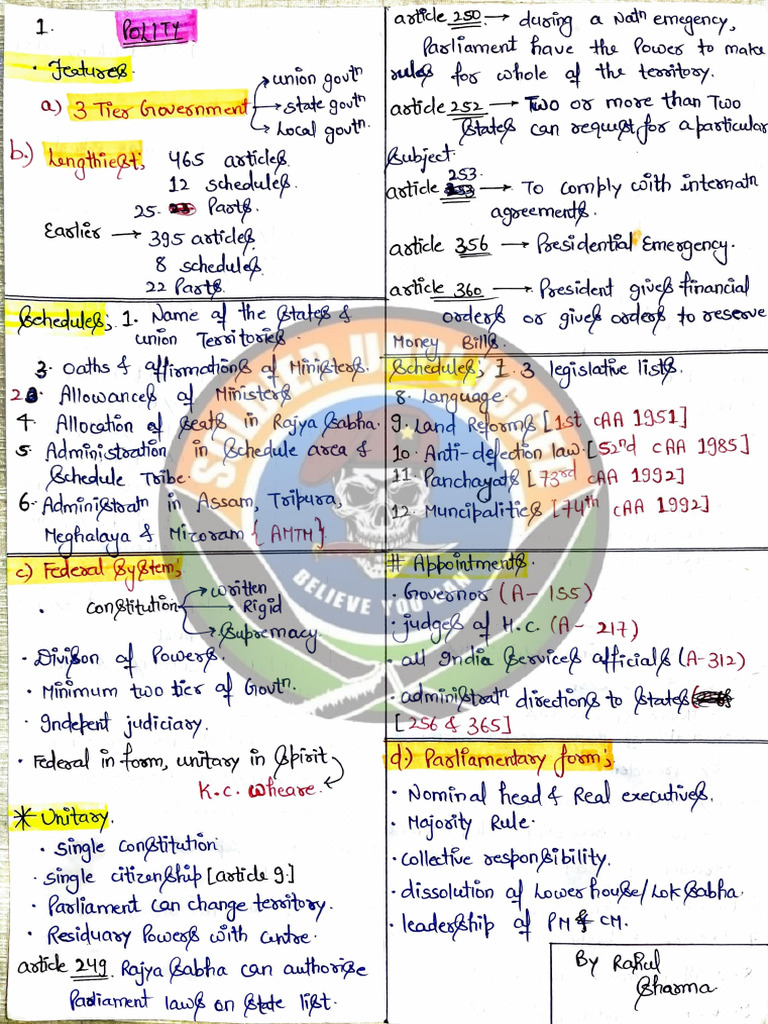 1. POLITY
· Features.
a) 3 Tier Government → union govtⁿ
→ state govtⁿ
→ Local govtⁿ.
b.) Lengthiest; 465 articles.
12 schedules.
25. Parts.
Earlier → 395 articles.
8 schedules.
22 Parts.
Schedules; 1. Name of the States &
union Territories.
3. oaths & affirmations of Ministers.
2. Allowances of Ministers
4. Allocation of seats in Rajya Sabha.
5. Administration in Schedule area &
Schedule Tribe.
6. Administratⁿ in Assam, Tripura,
Meghalaya & Mizoram {AMTM}
c) Federal System;
· constitution → written
→ Rigid
→ Supremacy.
· Divison of Powers.
· Minimum two tier of Govtⁿ.
· Indepent judiciary.
· Federal in form, unitary in Spirit
K.C. Wheare.
* Unitary.
· Single constitution.
· single citizenship [article 9.]
· Parliament can change territory.
· Residuary Powers with centre.
article 249. Rajya Sabha can authorise
Parliament laws on State list.
article 250. → during a Natⁿ emegency,
Parliament have the Power to make
rules for whole of the territory.
article 252 → Two or more than Two
States can request for a particular
Subject.
253.
article → To comply with internatⁿ
agreements.
article 356 → Presidential Emergency.
article 360 → President gives financial
orders or gives orders to reserve
Money Bills.
Schedules; 7. 3 legislative lists.
8. Language.
9. Land Reforms [1st CAA 1951]
10. Anti-defection law. [52nd CAA 1985]
11. Panchayats [73rd CAA 1992]
12. Muncipalities [74th CAA 1992]
# Appointments.
· Governor (A- 155)
· judges of H.C. (A- 217)
· all India Services officials (A-312)
· administratⁿ directions to states
[256 & 365]
d.) Parliamentary form;
· Nominal head & Real executives.
· Majority Rule.
· collective responsibility.
· dissolution of Lower house/Lok Sabha.
· leadership of PM & CM.
By Rahul
Sharma
SOLDIER
BELIEVE YOU CAN